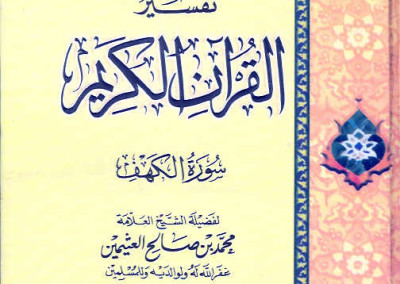 تفسير
القرآن الكريم
سورة الكهف
لفضيلة الشيخ العلامة
محمد بن صالح العثيمين
غفر الله له ولوالديه وللمسلمين